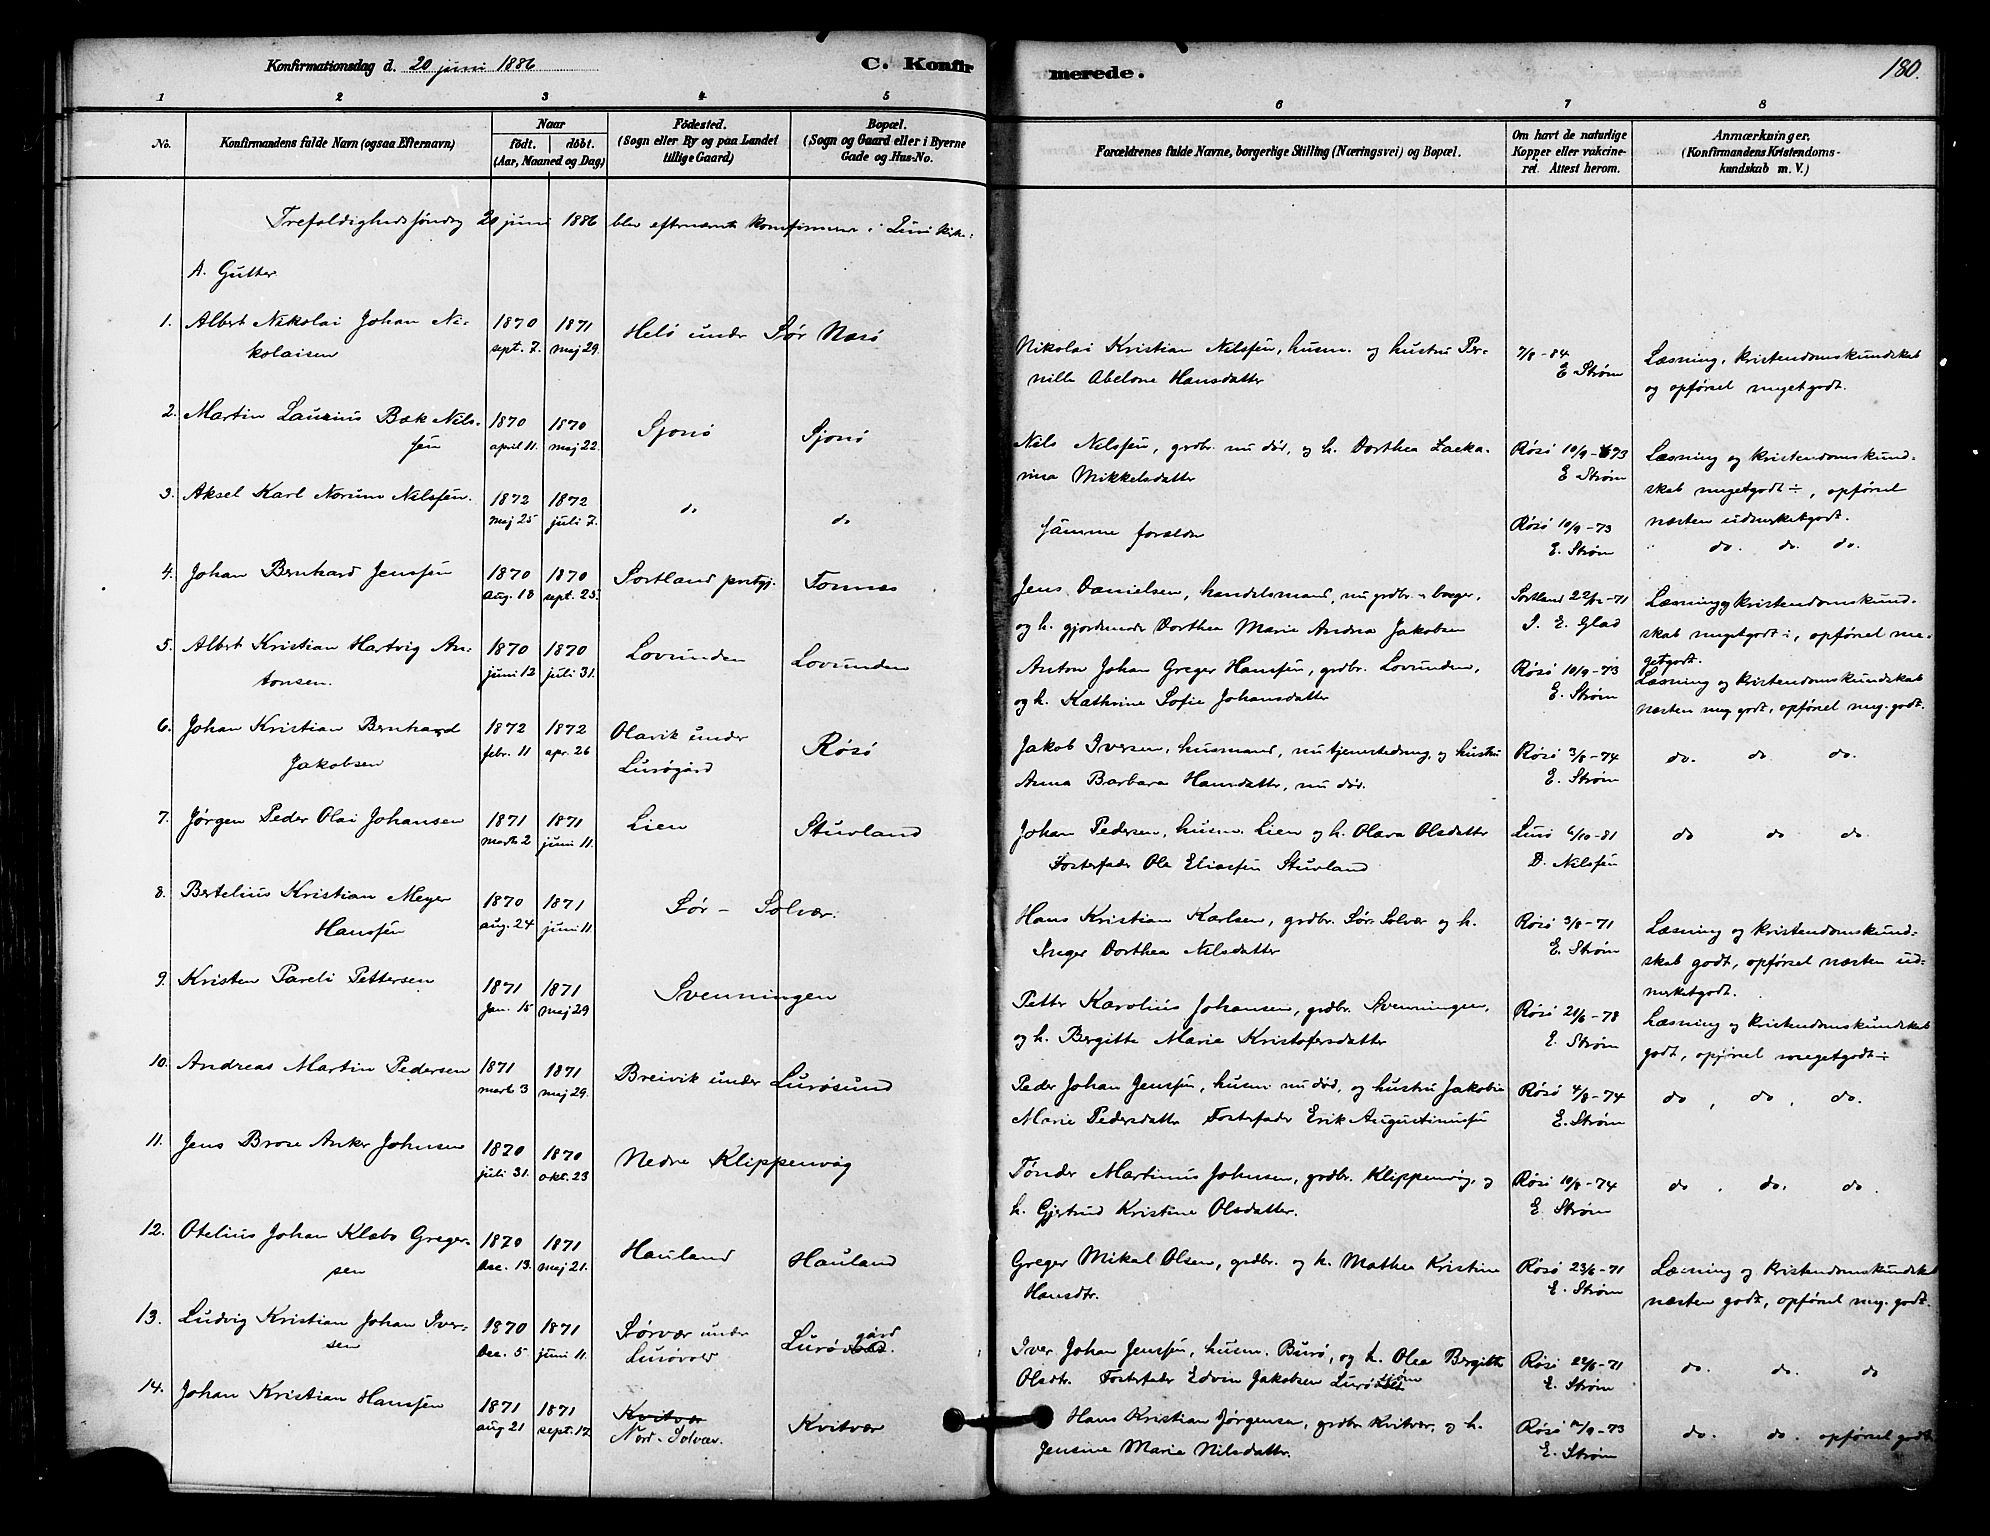 Konfirmationsdag d. 20 juni 1886
C. Konfirmerede.
180.
1 2 3 4 5 6 7 8
No.
Konfirmandens fulde Navn (ogsaa Efternavn)
Naar
født. døbt.
(Aar, Maaned og Dag)
Fødested.
(Sogn eller By og paa Landet
tillige Gaard)
Bopæl.
(Sogn og Gaard eller i Byerne
Gade og Hus-No.
Forældrenes fulde Navne, borgerlige Stilling (Næringsvei) og Bopæl.
Om havt de naturlige
Kopper eller vakcine-
ret. Attest herom.
Anmærkninger.
(Konfirmandens Kristendoms-
kundskab m. V.)
Trefoldighedssøndag 20 juni 1886 blev efternævnte konfirmeret i Kirke.
A. Gutter
1. Albert Nikolai Johan Ni-
kolaisen
1870 sept. 7.
1871 maj 29.
Helø under Sør Næsø
Nikolai Kristian Nilssen, husm. og hustru Per-
nille Abelone Hansdatter
7/8 - 84
E Strøm
Læsning, kristendomskundskab
og opførsel megetgodt.
2. Martin Laurius Bæk Nils-
sen
1870 april 11.
1870 maj 22.
Sjonø
Sjonø
Nils Nilssen, grdbr. nu død, og h. Dorthea Zacka-
rina Mikkelsdatter
Røsø 10/9 - 73
E Strøm
Læsning og kristendomskund-
skab megetgodt ÷, opførsel
næsten udmerketgodt.
3. Aksel Karl Norum Nilssen.
1872 maj 25
1872 juli 7.
do
do
samme forældre
Røsø 10/9 - 73
E. Strøm
" do. do. do.
4. Johan Bernhard Jenssen
1870 aug. 18
1870 sept. 25.
Sortland prstgj.
Tonnes
Jens Danielsen, handelsmand, nu grdbr.
og h. gjordemoder Dorthea Marie Andrea Jakobsen
Sortland 22/12 - 71
I. E. Glad
Læsning og kristendomskund-
skab megetgodt ÷, opførsel me-
getgodt.
5. Albert Kristian Hartvig An-
tonsen.
1870 juni 12
1870 juli 31.
Lovunden
Lovunden
Anton Johan Greger Hanssen, grdbr. Lovunden,
og h. Kathrine Sofie Johansdatter
Røsø 10/9 - 73
E. Strøm
Læsning og kristendomskundskab
næsten meg. godt, opførsel meg. godt.
6. Johan Kristian Bernhard
Jakobsen
1872 febr. 11
1872 apr. 26
Olavik under
Lurøgård
Røsø
Jakob Iversen, husmand, nu tjenestedreng, og hustru
Anna Barbara Hansdatter, nu død.
Røsø 3/8 - 74
E. Strøm
do. do do.
7. Jørgen Peder Olai Johansen
1871 marts 2
1871 juni 11.
Lien
Stuvland
Johan Pedersen, husm. Lien og h. Olava Olsdatter
Fosterfader Ole Eliassen Stuvland
Lurø 6/10 - 81
D. Nilssen
do do do
8. Bertelius Kristian Meyer
Hanssen
1870 aug. 24
1871 juni 11
Sør - Solvær.
Hans Kristian Karlsen, grdbr. Sør-Solvær og h.
Inger Dorthea Nilsdatter
Røsø 3/8 - 71
E. Strøm
Læsning og kristendomskund-
skab godt, opførsel næsten ud-
merketgodt.
9. Kristen Pareli Pettersen
1871 Jan. 15
1871 maj 29
Svenningen
Petter Karolius Johansen, grdbr. Svenningen,
og h. Bergitte Marie Kristofersdatter
Røsø 21/6 - 78
E. Strøm
Læsning og kristendomskundskab
godt, opførsel megetgodt ÷
10. Andreas Martin Pedersen
1871 marts 3
1871 maj 29.
Breivik under Lurøsund
Peder Johan Jenssen, husm. nu død, og hustru Jakobia
Marie Pedersdatter Fosterfader Erik Augustinussen
Røsø 4/8 - 74
E. Strøm
do, do, do.
11. Jens Brose Anker Johnsen
1870 juli 31.
1870 okt. 23
Nedre Klippenvåg
Tønder Martinus Johnsen, grdbr. Klippenvåg, og
h. Gjertrud Kristine Olsdatter.
Røsø 10/8 - 74
E. Strøm
do, do. do.
12. Otelius Johan Klæbo Greger-
sen
1870 Dec. 13.
1871 maj 21.
Hauland
Hauland
Greger Mikal Olsen, grdbr. og h. Mathea Kristine
Hansdtr.
Røsø 23/6 - 71
E. Strøm
Læsning og kristendomskundskab
næsten godt, opførsel meg. godt.
13. Ludvig Kristian Johan Iver-
sen
1870 Dec. 5.
1871 juni 11.
Sørvær under
Lurøvold
Lurøgård
Iver Johan Jenssen, husm. Burø, og h. Olea Bergitte
Olsdtr. Fosterfader Edvin Jakobsen
Røsø 22/6 - 71
E. Strøm
do. do. do
14. Johan Kristian Hanssen
1871 aug 21
1871 sept. 17.
Kvitvær
Nord-Solvær.
Kvitvær
Hans Kristian Jørgensen, grdbr. Kvitvær, og h.
Jensine Marie Nilsdatter.
Røsø 10/9 - 73
E. Strøm
do. do. opførsel godt